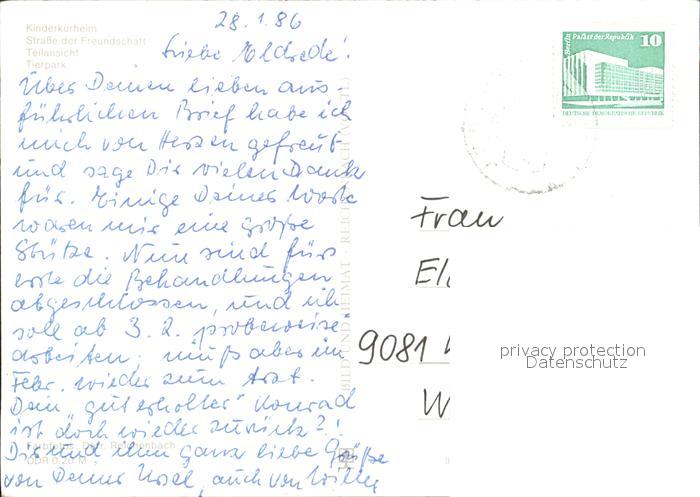 28.1.86
Kinderkurheim
Straße der Freundschaft
Teilansicht
Tierpark
Liebe
Über Deinen lieben aus-
führlichen Brief habe ich
mich von Herzen gefreut
und sage Dir vielen Dank
für. Einige Deiner Worte
waren mir eine große
Stütze. Nun sind fürs
erste die Behandlungen
abgeschlossen, und ich
soll ab 3.2. probeweise
arbeiten, muß aber im
Febr. wieder zum Arzt.
Dein "guterholter" Konrad
ist doch wieder zurück?!
Dir und ihm ganz liebe Grüße
von Deiner Ursel, auch von Willy
DDR 0,20 M
BILD UND HEIMAT · REICHENBACH
Berlin Palast der Republik 10
DEUTSCHE DEMOKRATISCHE REPUBLIK
Frau
El
9081
W
privacy protection
Datenschutz